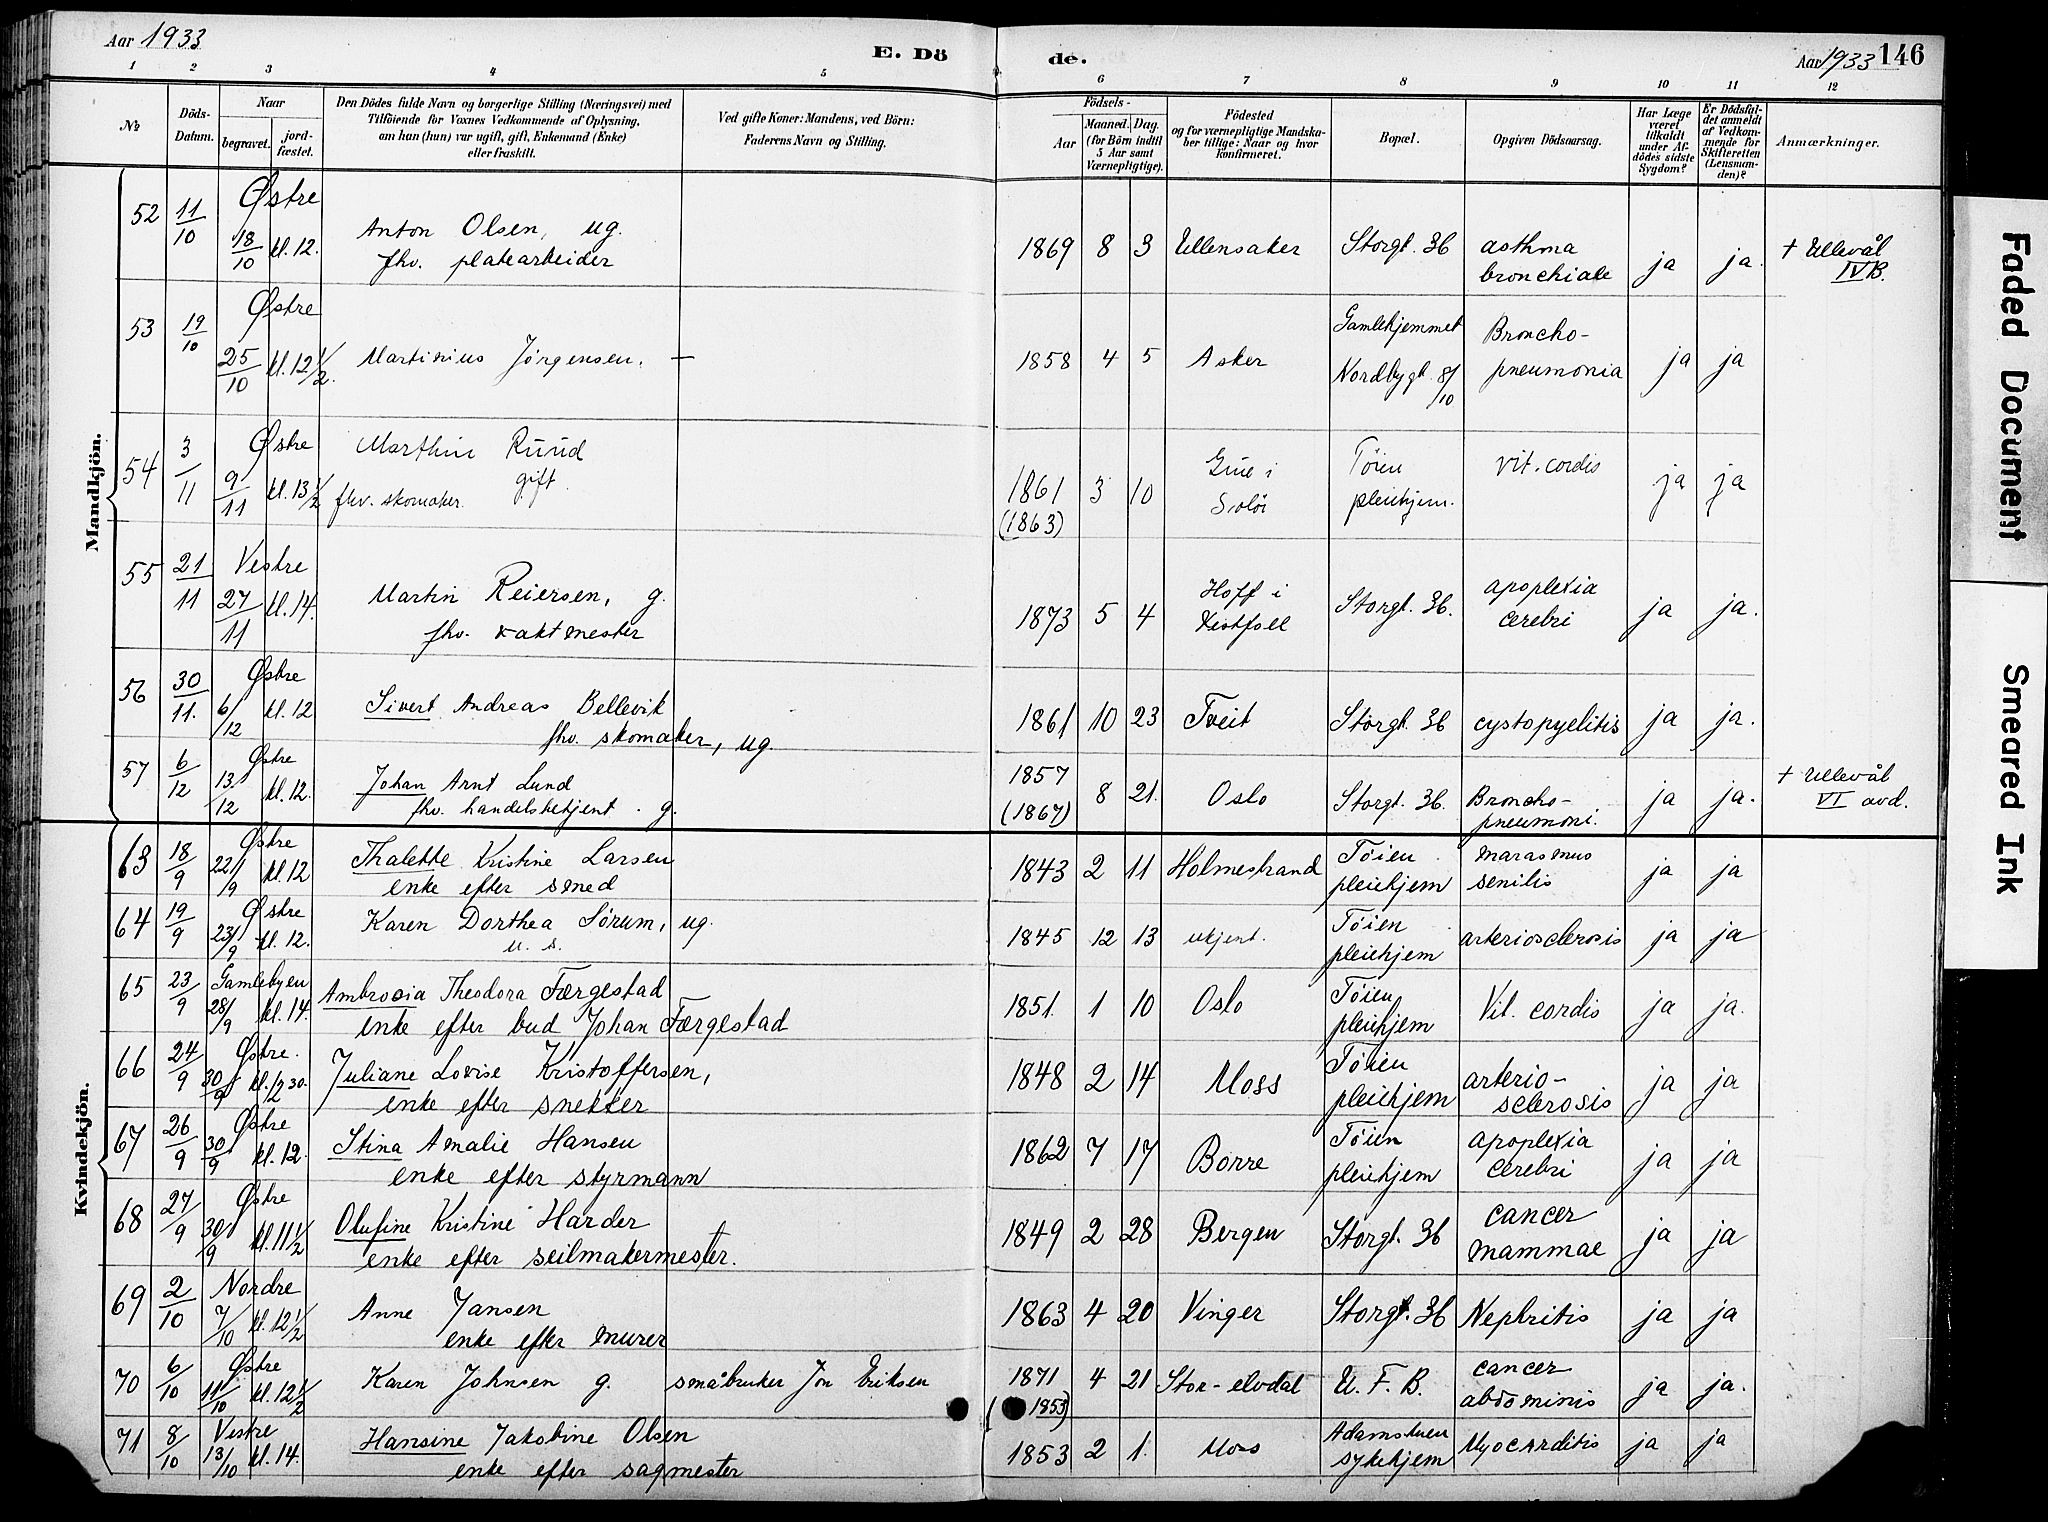 Aar 1933
E. Dö
de.
Aar 1933 146
1 2 3 4 5 6 7 8 9 10 11 12
№
Döds-Datum.
Naar
begravet.
jord-fæstet.
Den Dödes fulde Navn og borgerlige Stilling (Næringsvei) med
Tilföiende for Voxnes Vedkommende af Oplysning,
om han (hun) var ugift, gift, Enkemand (Enke)
eller fraskilt.
Ved gifte Koner: Mandens, ved Börn:
Faderens Navn og Stilling.
Födsels-
Aar
Maaned. Dag.
(for Börn indtil
5 Aar samt
Værnepligtige).
Födested
og for værnepligtige Mandska-
ber tillige: Naar og hvor
konfirmeret.
Bopæl.
Opgiven Dödsaarsag.
Har Læge
været
tilkaldt
under Af-
dödes sidste
Sygdom?
Er Dödsfal-
det anmeldt
af Vedkom-
mende for
Skifteretten
(Lensman-
den)?
Anmærkninger.
Mandkjön.
52 11/10 Østre 18/10 kl. 12. Anton Olsen, ug.
fhv. platearbeider
1869 8 3 Ullensaker Storgt. 36 asthma
bronchiale ja ja. + Ullevål
IVB.
53 19/10 Østre 25/10 kl. 12 1/2. Martinius Jørgensen. —
1858 4 5 Asker Gamlehjemmet
Nordbygt. 8/10 Broncho-
pneumonia ja ja
54 3/11 Østre 9/11 kl. 13 1/2 Marthin Ruud
gift
fhv. skomaker.
1861
(1863) 3 10 Grue i
Solør Tøien
pleiehjem. vit. cordis ja ja
55 21/11 Vestre 27/11 kl. 14. Martin Reiersen, g.
fhv. vaktmester
1873 5 4 Hoff i
Vestfoll Storgt. 36. apoplexia
cerebri ja ja.
56 30/11. Østre 6/12 kl. 12 Sivert Andreas Bellevik
fhv. skomaker, ug.
1861 10 23 Tveit Storgt. 36 cystopyelitis ja ja.
57 6/12 Østre 13/12 kl. 12. Johan Arnt Lund
fhv. handelsbetjent. g.
1857
(1867) 8 21. Oslo Storgt. 36. Broncho-
pneumoni. ja ja. + Ullevål
VI avd.
Kvindekjön.
63 18/9 Østre 22/9 kl. 12 Thalette Kristine Larsen
enke efter smed
1843 2 11 Holmestrand Tøien
pleiehjem marasmus
senilis ja ja
64 19/9 Østre 23/9 kl. 12. Karen Dorthea Sørum, ug.
u. s.
1845 12 13 ukjent. Tøien
pleiehjem arteriosclerosis ja ja
65 23/9 Gamlebyen 28/9 kl. 14. Ambrosia Theodora Færgestad
enke efter bud Johan Færgestad
1851. 1 10 Oslo Tøien
pleiehjem Vit. cordis ja ja.
66 24/9 Østre. 30/9 kl. 12 30. Juliane Lovise Kristoffersen,
enke efter snekker
1848 2 14 Moss Tøien
pleiehjem arterio-
sclerosis ja ja
67 26/9 Østre 30/9 kl. 12. Stina Amalie Hansen
enke efter styrmann
1862 7 17 Borre Tøien
pleiehjem apoplexia
cerebri ja ja
68 27/9 Østre 30/9 kl. 11 1/2 Olufine Kristine Harder
enke efter seilmakermester.
1849 2 28 Bergen Storgt. 36 cancer
mammae ja ja
69 2/10 Nordre 7/10 kl. 12 1/2 Anne Jansen
enke efter murer
1863 4 20 Vinger Storgt. 36 Nephritis ja ja
70 6/10 Østre 11/10 kl. 12 1/2 Karen Johnsen g. småbruker Jon Eriksen
1871
(1853) 4 21 Stor-elvdal U. F. B. cancer
abdominis ja ja.
71 8/10 Vestre 13/10 kl. 14. Hansine Jakobine Olsen
enke efter sagmester
1853 2 1. Moss Adamstuen
sykehjem Myocarditis ja ja
Faded Document
Smeared Ink